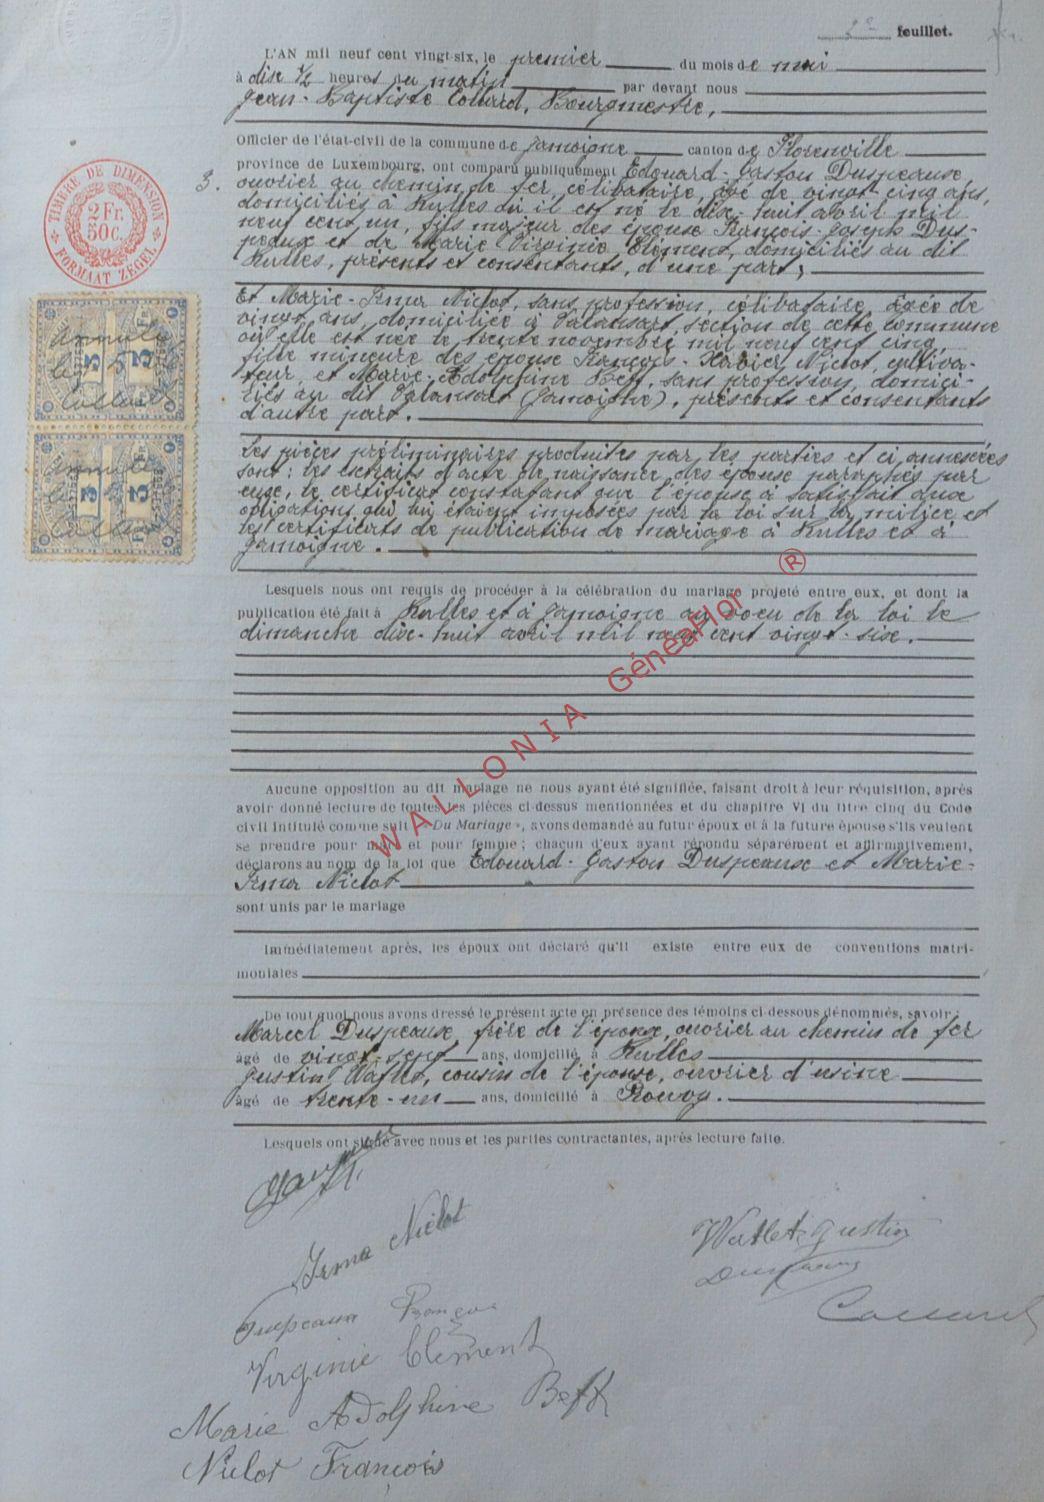 2e feuillet.
3.
L'AN mil neuf cent vingt-six, le premier du mois de mai
à dix ½ heures du matin par devant nous
Jean-Baptiste Collard, Bourgmestre,
Officier de l'état-civil de la commune de Jamoigne canton de Florenville
province de Luxembourg, ont comparu publiquement Edouard-Gaston Duspeaux,
ouvrier au chemin de fer, célibataire, âgé de vingt cinq ans,
domiciliés à Rulles où il est né le dix-huit avril mil
neuf cent un, fils majeur des époux François-Joseph Dus-
peaux et de Marie Virginie Clément, domiciliés au dit
Rulles, présents et consentants, d'une part,
Et Marie-Irma Niclot, sans profession, célibataire, âgée de
vingt ans, domiciliée à Valansart, section de cette commune
où elle est née le trente novembre mil neuf cent cinq
fille mineure des époux François-Xavier Niclot, cultiva-
teur, et Marie-Adolphine sans profession, domici-
liés au dit Valansart (Jamoigne), présents et consentants
d'autre part.
Les pièces préliminaires produites par les parties et ci annexées
sont: les extraits d'acte de naissance des époux paraphés par
eux, le certificat constatant que l'époux a satisfait aux
obligations qui lui étaient imposées par la loi sur la milice et
les certificats de publication de mariage à Rulles et à
Jamoigne.
Lesquels nous ont requis de procéder à la célébration du mariage projeté entre eux, et dont la
publication été fait à Rulles et à Jamoigne au voeu de la loi le
dimanche dix-huit avril mil neuf cent vingt-six.
Aucune opposition au dit mariage ne nous ayant été signifiée, faisant droit à leur réquisition, après
avoir donné lecture de toutes les pièces ci-dessus mentionnées et du chapitre VI du titre cinq du Code
civil intitulé comme suit « Du Mariage », avons demandé au futur époux et à la future épouse s'ils veulent
se prendre pour mari et pour femme ; chacun d'eux ayant répondu séparément et affirmativement,
déclarons au nom de la loi que Edouard-Gaston Duspeaux et Marie-
Irma Niclot
sont unis par le mariage
Immédiatement après, les époux ont déclaré qu'il existe entre eux de conventions matri-
moniales
De tout quoi nous avons dressé le présent acte en présence des témoins ci-dessous dénommés, savoir :
Marcel Duspeaux, frère de l'époux, ouvrier au chemin de fer
âgé de vingt-sept ans, domicilié à Rulles
Justin Watlet, cousin de l'épouse, ouvrier d'usine
âgé de trente-un ans, domicilié à Rouvoy.
Lesquels ont signé avec nous et les parties contractantes, après lecture faite.
Irma Niclot
Watlet Justin
Duspeaux
Collard
Duspeaux François
Virginie Clément
Marie Adolphine
Niclot François
TIMBRE DE DIMENSION
2 Fr.
50 c.
FORMAAT ZEGEL
3 Fr. 3
annulé
le
Collard
3 Fr. 3
annulé
le
Collard
WALLONIA GénéaFlor ®